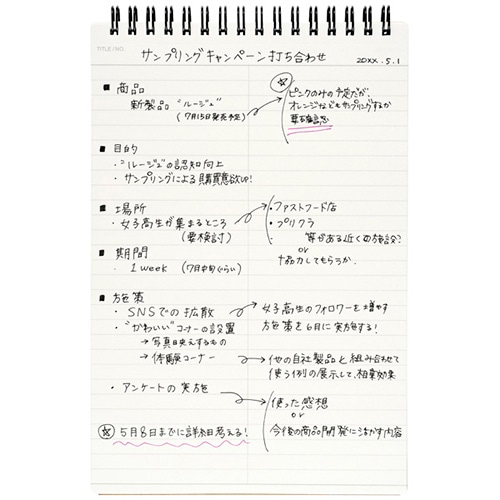 TITLE/NO.
サンプリングキャンペーン打ち合わせ 20XX.5.1
■商品
新製品 "ルージュ"
(7月15日発売予定)
☆
ピンクのみの予定だが、
オレンジなどもサンプリングするか
要確認
■目的
・"ルージュ"の認知向上
・サンプリングによる購買意欲UP!
■場所
・女子高生が集まるところ
(要検討)
・ファストフード店
・プリクラ
等がある近くの施設?
or
協力してもらうか
■期間
・1week (7月中旬ぐらい)
■施策
・SNSでの拡散
女子高生のフォロワーを増やす
施策を6月に実施する!
・"かわいい"コーナーの設置
→写真映えするもの
→体験コーナー
他の自社製品と組み合わせて
使う例の展示して、相乗効果
・アンケートの実施
使った感想
or
今後の商品開発に活かす内容
☆ 5月8日までに詳細考える!